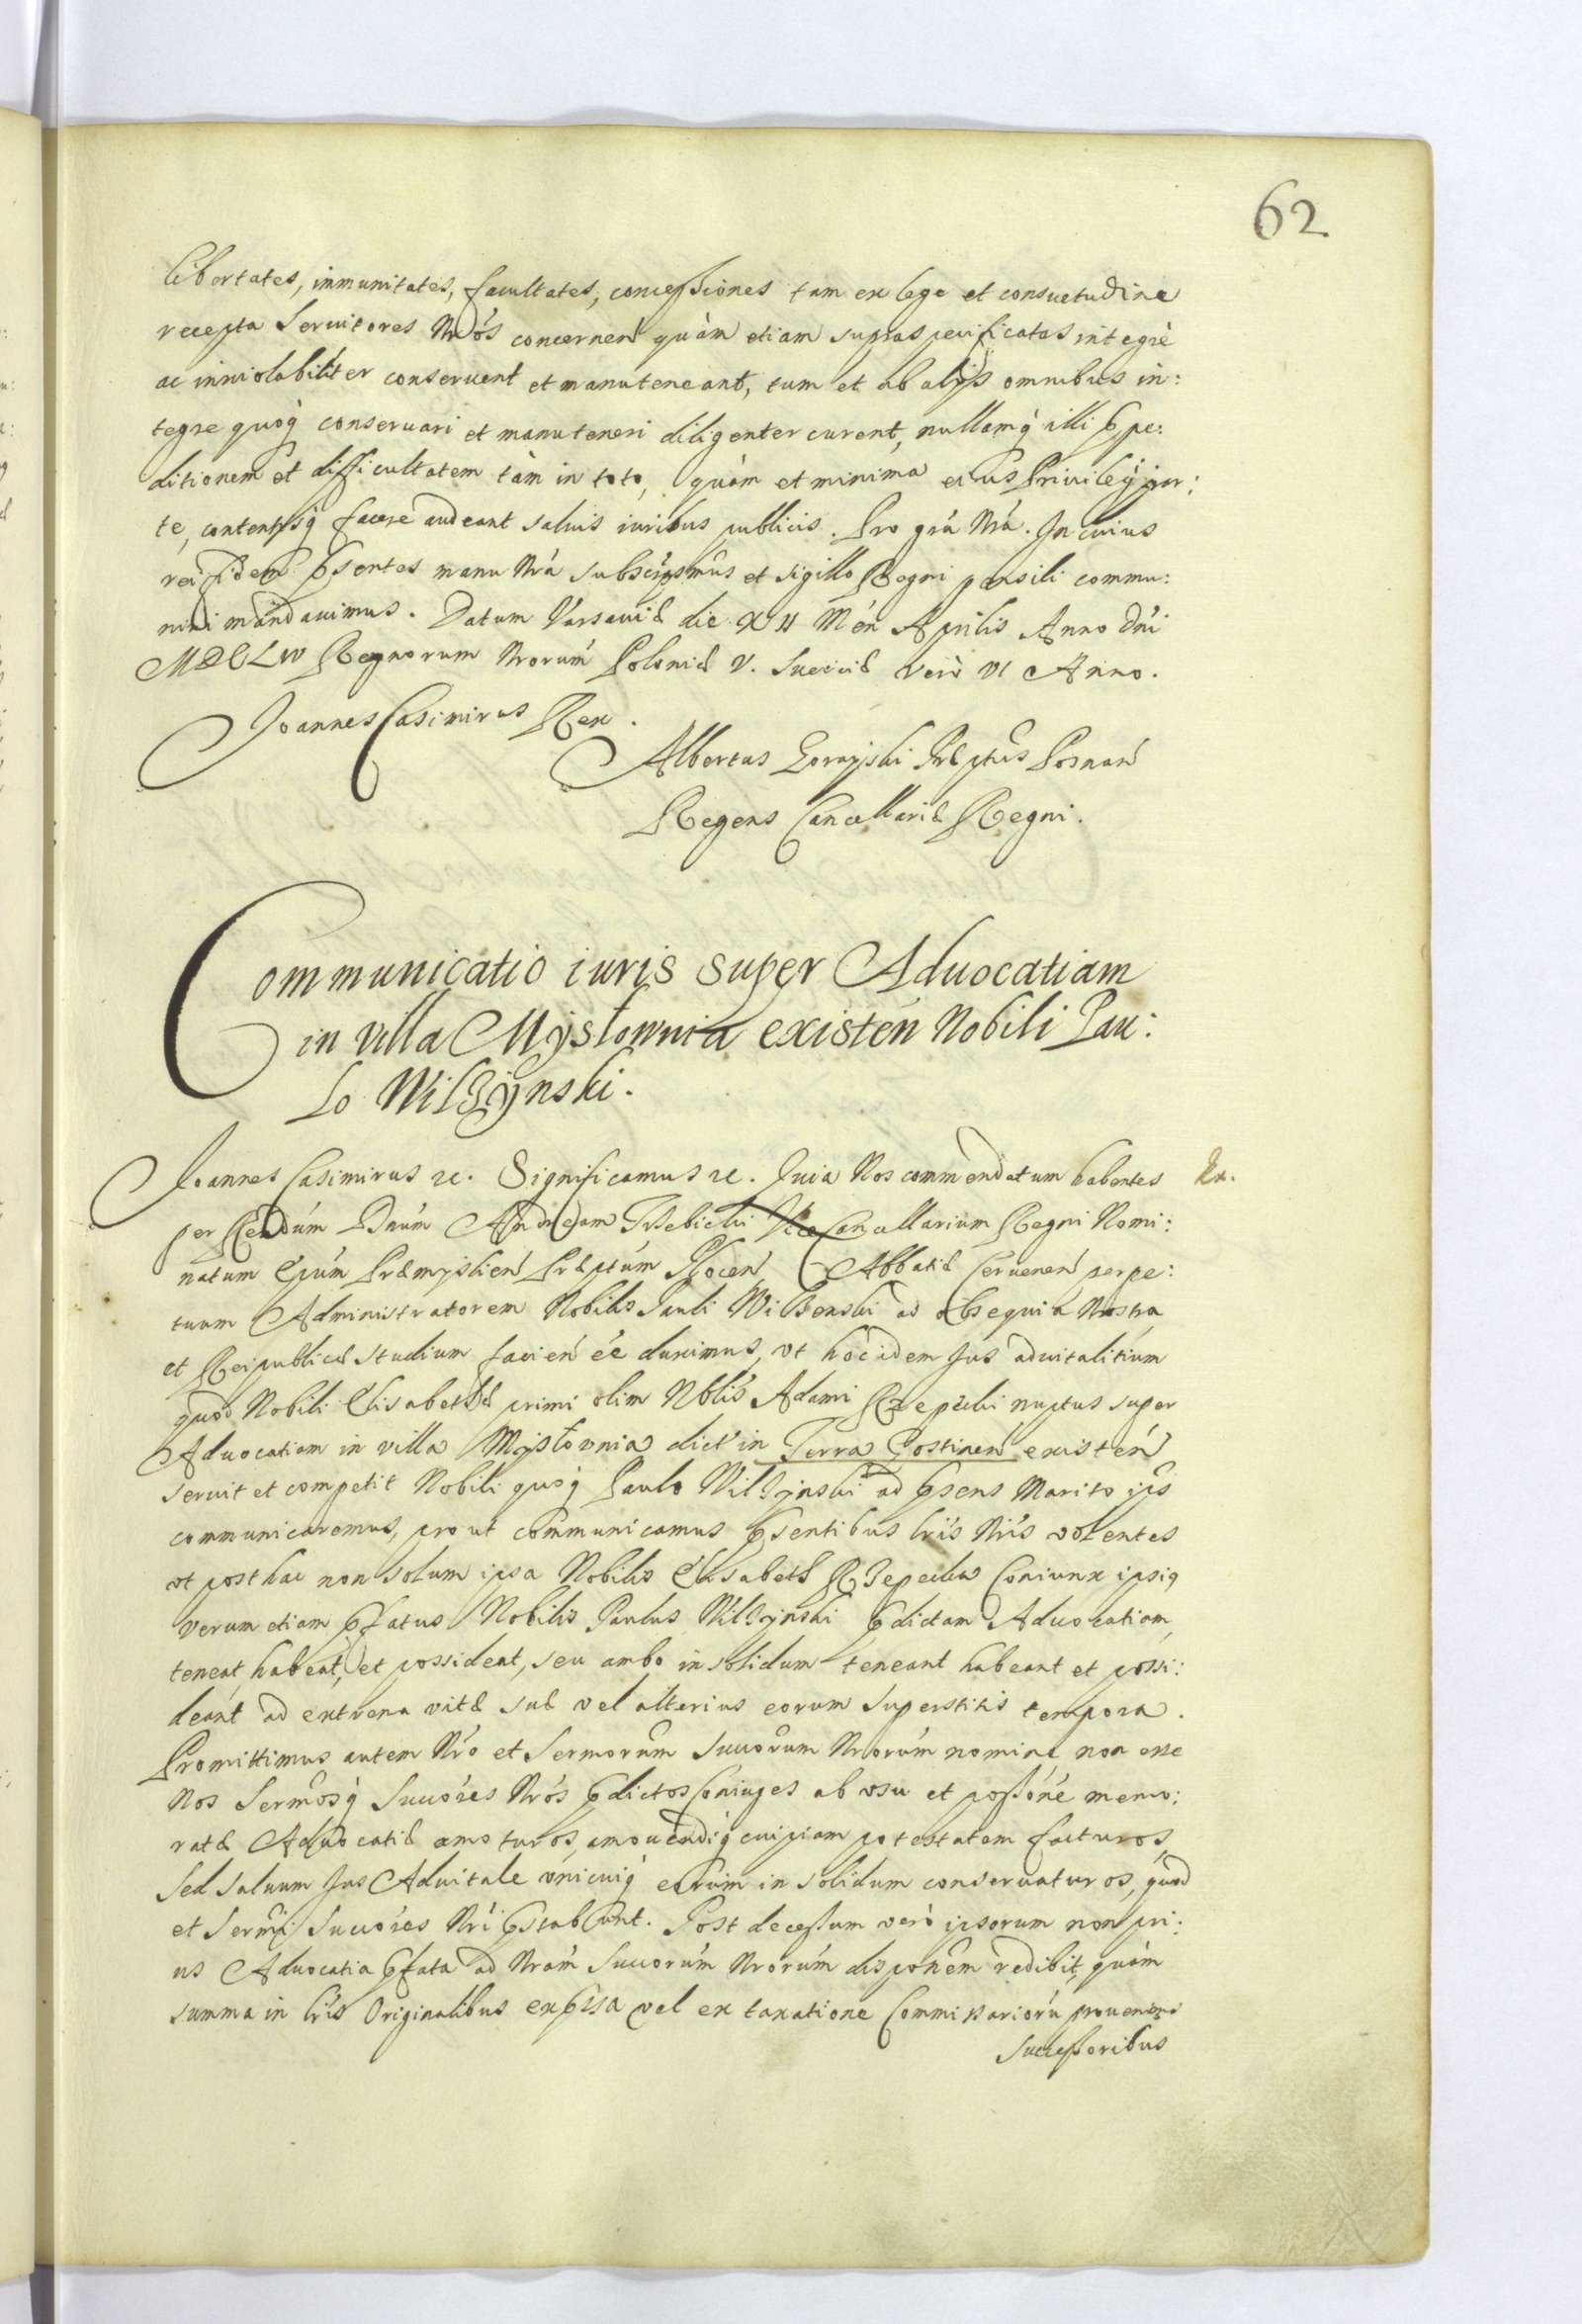 62
libertates, inmunitates, facultates, concessiones tam ex lege et consuetudine
recepta Seruitores Nrós concernen quàm etiam supraspecificatas integrè
ac inuiolabiliter conseruent et manuteneant, tum et ab alijs omnibus in:
tegre quoq conseruari et manuteneri diligenter curent, nullamq illi
ditionem et difficultatem tàm in toto, quàm et minima eius Priuilegij par:
te, contentisq facere audeant saluis iuribus publicis. Pro grá Nrá. In cuius
rei fidem pńsentes manu Nrá subscripsimus et sigillo Regni pensili commu:
niri mandauimus. Datum Varsauiæ die XII Men Aprilis Anno Dńi
MDCLIV Regnorum Nrorum Poloniæ V. Sueciæ verò VI Anno.
Joannes Casimirus Rex.
Albertus Gorayski Præptus Posnań
Regens Cancellariæ Regni.
Communicatio iuris super Aduocatiam
in villa Mysłownia existeń Nobili Pau:
lo Wilżynski.
Joannes Casimirus etc. Significamus etc. Quia Nos commendatum habentes
per Rendum Dnúm Andream Trzebicki Vice Cancellarium Regni Nomi:
natum Epúm Præmyslien Præptum Płocen Abbatiæ Ceruenen perpe:
tuum Administratorem Nobilis Pauli Wilżenski ad obsequia Nostra
et Reipublicæ studium facien eé duximus, vt hoc idem Jus aduitalitium
quod Nobili Elisabethæ primi olim Nblis Adami Rzepecki nuptus super
Aduocatiam in villa Mysłownia dict in Terra Gostinen existeń
seruit et competit Nobili quoq Paulo Wilżynski ad pńsens Marito ips
communicaremus, prout communicamus pńsentibus lris Nris volentes
vt posthac non solum ipsa Nobilis Elisabeth Rzepecka Coniunx ipsiq
verum etiam pfatus Nobilis Paulus Wilżynski pdictam Aduocatiam,
teneat, habeat, et possideat, seu ambo in solidum teneant habeant et possi:
deant ad extrema vitæ suæ vel alterius eorum superstitis tempora.
Promittimus autem Nro et Sermorum Succorum Nrorúm nomine non esse
Nos Sermosq Succores Nrós pdictos Coniuges ab vsu et possóne memo:
ratæ Aduocatiæ amoturos, amouendiq cuipiam potestatem facturos,
Sed saluum Jus Aduitale vnicuiq eorum in solidum conseruaturos, quod
et Sermi Succores Nri pstabunt. Post decessum verò ipsorum non pri:
us Aduocatia pfata ad Nram Succorum Nrorúm disponem redibit, quàm
summa in lris Originalibus expssa vel ex taxatione Commissariorú proueniens
Successoribus